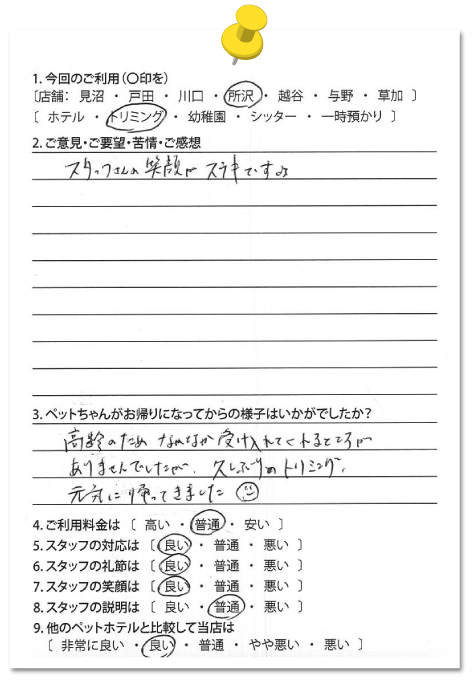 1. 今回のご利用(〇印を)
〔店舗： 見沼 ・ 戸田 ・ 川口 ・ 所沢 ・ 越谷 ・ 与野 ・ 草加 〕
〔 ホテル ・ トリミング ・ 幼稚園 ・ シッター ・ 一時預かり 〕
2. ご意見・ご要望・苦情・ご感想
スタッフさんの笑顔がステキですよ
3. ペットちゃんがお帰りになってからの様子はいかがでしたか？
高齢のため なかなか受け入れてくれるところが
ありませんでしたが、久しぶりのトリミング、
元気に帰ってきました
4. ご利用料金は 〔 高い ・ 普通 ・ 安い 〕
5. スタッフの対応は 〔 良い ・ 普通 ・ 悪い 〕
6. スタッフの礼節は 〔 良い ・ 普通 ・ 悪い 〕
7. スタッフの笑顔は 〔 良い ・ 普通 ・ 悪い 〕
8. スタッフの説明は 〔 良い ・ 普通 ・ 悪い 〕
9. 他のペットホテルと比較して当店は
〔 非常に良い ・ 良い ・ 普通 ・ やや悪い ・ 悪い 〕